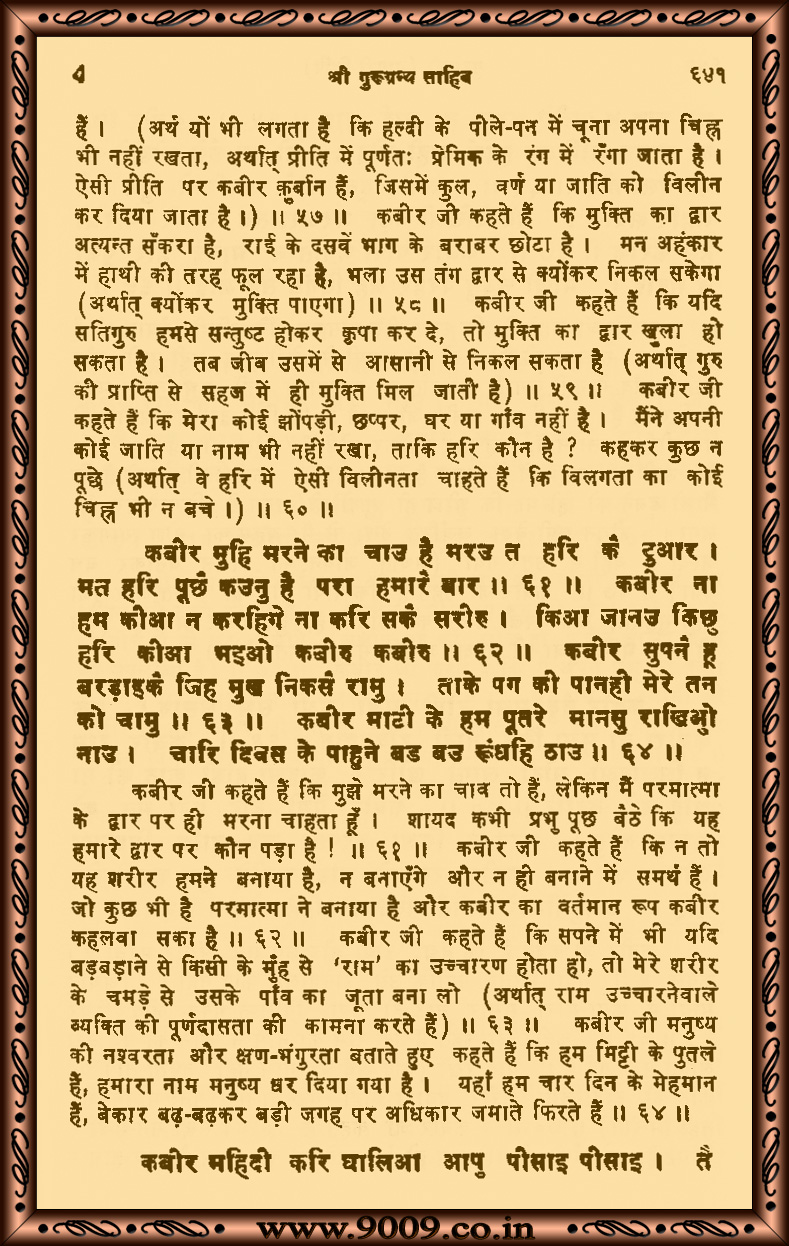 श्री गुरूग्रन्थ साहिब ६४१
हैं । (अर्थ यों भी लगता है कि हल्दी के पीले-पन में चूना अपना चिह्न
भी नहीं रखता, अर्थात् प्रीति में पूर्णतः प्रेमिक के रंग में रँगा जाता है ।
ऐसी प्रीति पर कबीर क़ुर्बान हैं, जिसमें कुल, वर्ण या जाति को विलीन
कर दिया जाता है ।) ॥ ५७ ॥ कबीर जी कहते हैं कि मुक्ति का द्वार
अत्यन्त सँकरा है, राई के दसवें भाग के बराबर छोटा है । मन अहंकार
में हाथी की तरह फूल रहा है, भला उस तंग द्वार से क्योंकर निकल सकेगा
(अर्थात् क्योंकर मुक्ति पाएगा) ॥ ५८ ॥ कबीर जी कहते हैं कि यदि
सतिगुरु हमसे सन्तुष्ट होकर कृपा कर दे, तो मुक्ति का द्वार खुला हो
सकता है । तब जीव उसमें से आसानी से निकल सकता है (अर्थात् गुरु
की प्राप्ति से सहज में ही मुक्ति मिल जाती है) ॥ ५९ ॥ कबीर जी
कहते हैं कि मेरा कोई झोंपड़ी, छप्पर, घर या गाँव नहीं है । मैंने अपनी
कोई जाति या नाम भी नहीं रखा, ताकि हरि कौन है ? कहकर कुछ न
पूछे (अर्थात् वे हरि में ऐसी विलीनता चाहते हैं कि विलगता का कोई
चिह्न भी न बचे ।) ॥ ६० ॥
कबीर मुहि मरने का चाउ है मरउ त हरि कै दुआर ।
मत हरि पूछै कउनु है परा हमारै बार ॥ ६१ ॥ कबीर ना
हम कीआ न करहिगे ना करि सकै सरीरु । किआ जानउ किछु
हरि कीआ भइओ कबीरु कबीरु ॥ ६२ ॥ कबीर सुपनै हू
बरड़ाइकै जिह मुख निकसै रामु । ताके पग की पानही मेरे तन
को चामु ॥ ६३ ॥ कबीर माटी के हम पूतरे मानसु राखिओु
नाउ । चारि दिवस के पाहुने बड बउ रूंधहि ठाउ ॥ ६४ ॥
कबीर जी कहते हैं कि मुझे मरने का चाव तो है, लेकिन मैं परमात्मा
के द्वार पर ही मरना चाहता हूँ । शायद कभी प्रभु पूछ बैठे कि यह
हमारे द्वार पर कौन पड़ा है ! ॥ ६१ ॥ कबीर जी कहते हैं कि न तो
यह शरीर हमने बनाया है, न बनाएँगे और न ही बनाने में समर्थ हैं ।
जो कुछ भी है परमात्मा ने बनाया है और कबीर का वर्तमान रूप कबीर
कहलवा सका है ॥ ६२ ॥ कबीर जी कहते हैं कि सपने में भी यदि
बड़बड़ाने से किसी के मुँह से ‘राम’ का उच्चारण होता हो, तो मेरे शरीर
के चमड़े से उसके पाँव का जूता बना लो (अर्थात् राम उच्चारनेवाले
व्यक्ति की पूर्णदासता की कामना करते हैं) ॥ ६३ ॥ कबीर जी मनुष्य
की नश्वरता और क्षण-भंगुरता बताते हुए कहते हैं कि हम मिट्टी के पुतले
हैं, हमारा नाम मनुष्य धर दिया गया है । यहाँ हम चार दिन के मेहमान
हैं, बेकार बढ़-बढ़कर बड़ी जगह पर अधिकार जमाते फिरते हैं ॥ ६४ ॥
कबीर महिदी करि घालिआ आपु पीसाइ पीसाइ । तै
www.9009.co.in